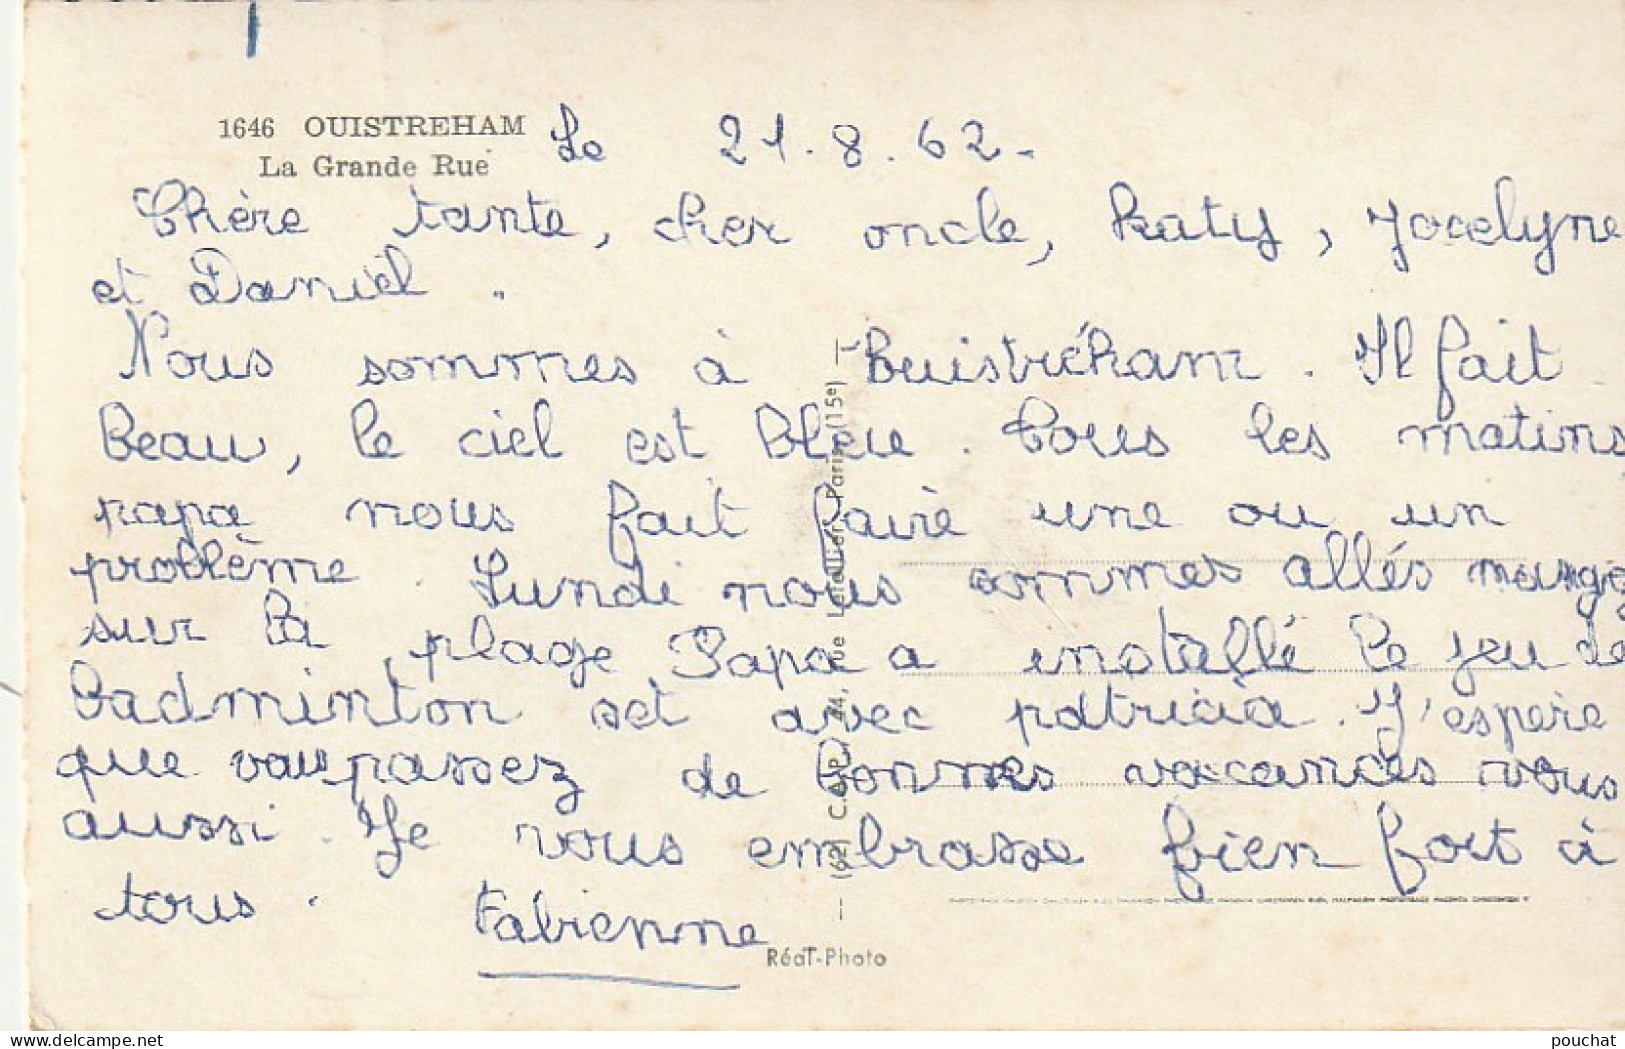 1646 OUISTREHAM
La Grande Rue
Le 21.8.62.
Chère tante, cher oncle, Katy, Jocelyne
et Daniel.
Nous sommes à Ouistréham. Il fait
beau, le ciel est bleu. Tous les matins
papa nous fait faire une ou un
problème. Lundi nous sommes allés mange
sur la plage Papa a installé le jeu de
badminton set avec patricia. J'espère
que vous passez de bonnes vacances vous
aussi. Je vous embrasse bien fort à
tous.
Fabienne
(62) C.A.P. 44, rue Letellier, Paris (15e)
Réal-Photo
delcampe.net
pouchat